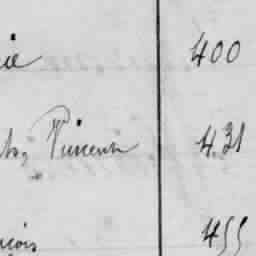 ie 400
ts, Vincent 431
çois 455